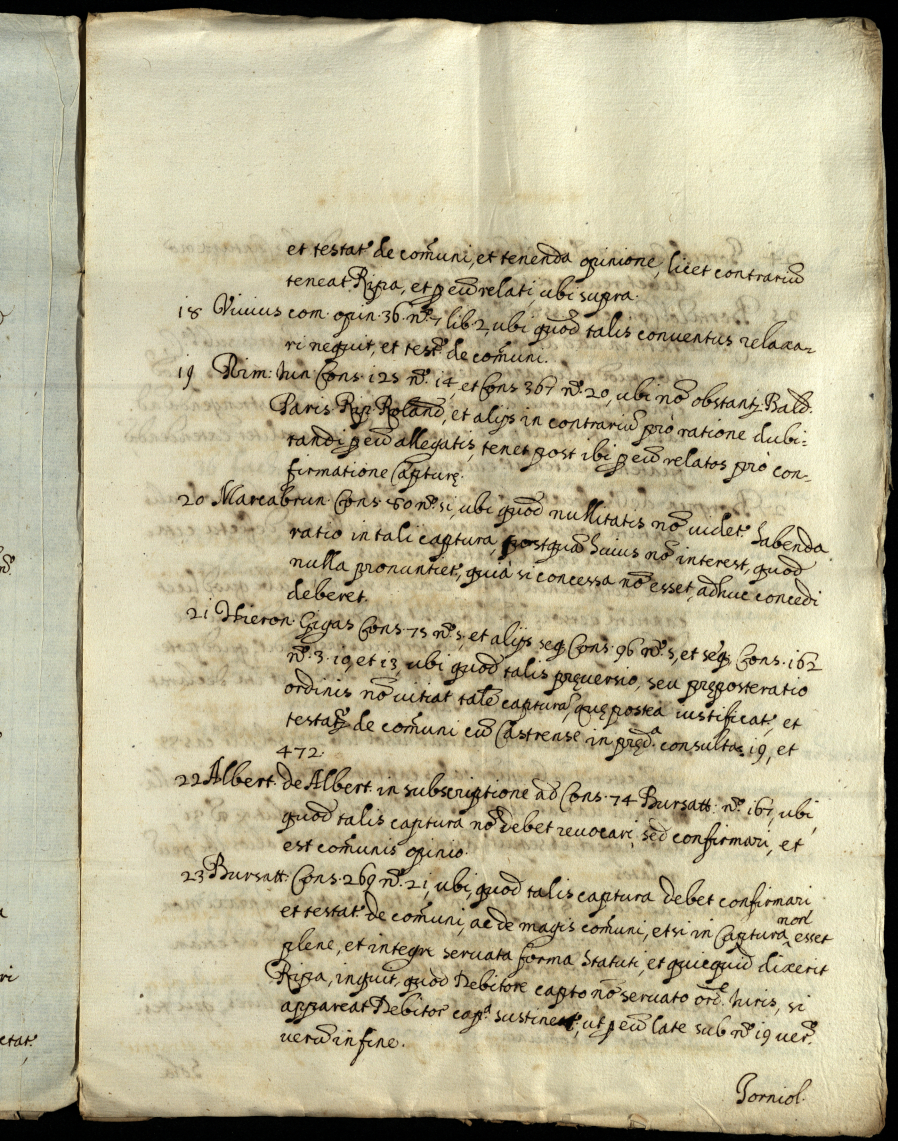 et testat.r de com̃uni, et tenenda opinione, licet contrariũ
teneat Ripa, et p eũ relati ubi supra.
18 Viuius com. opin. 36. n.º 7 lib. 2, ubi quod talis conuentus relaxa-
ri nequit, et test.r de com̃uni.
19 Rim: Iun Cons. 125 n.º 14, et Cons 367 n.º 20, ubi nõ obstant; Bald.
Paris Rip. Roland, et alijs in contrariũ prò ratione dubi:
tandi p eũ allegatis, tenet post ibi p eũ relatos prò con-
firmatione Capturę.
20 Marcabrun. Cons. 80 n.º 51, ubi quod nullitatis nõ uidet.r habenda
ratio in tali captura, postquã huius nõ interest, quod
nulla pronuntiet.r, quia si concessa nõ esset, adhuc concedi
deberet.
21 Hieron. Gigas Cons. 75 n.º 5, et alijs seq Cons. 96 n.º 5, et seq; Cons. 162
n.º 3. 10, et 13, ubi quod talis pręuersio, seu pręposteratio
ordinis nõ uitiat talẽ capturã, quę postea iustificat.r, et
testat.r de com̃uni cũ Castrense in pręd.ª consulta 19, et
472.
22 Albert. de Albert. in subscriptione ad Cons. 74 Bursatt. n.º 167, ubi
quod talis captura nõ debet reuocari, sed confirmari, et
est com̃unis opinio.
23 Bursatt. Cons. 269 n.º 21, ubi, quod talis captura debet confirmari
et testat.r de com̃uni, ac de magis com̃uni, etsi in Captura non esset
plene, et integre seruata forma Statuti, et quicquid dixerit
Ripa, inquit, quod Debitore capto nõ seruato ord.e Iuris, si
appareat Debitor cap.ª sustinet.r, ut p eũ late sub n.º 19 uer.º
uerũ in fine.
Torniol.